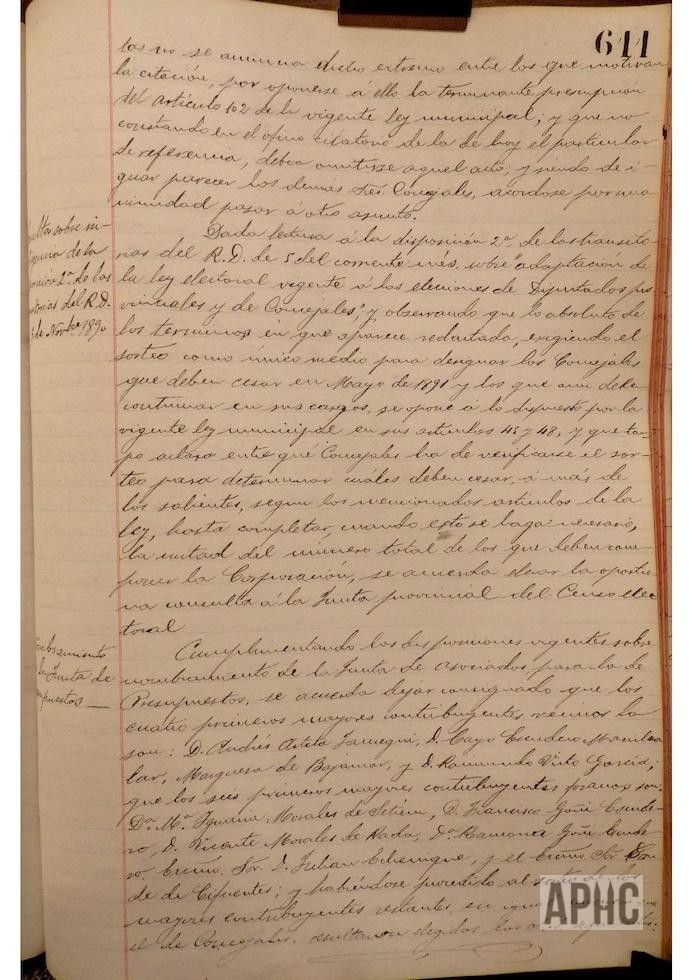 611
tas no se anuncia dicho extremo entre los que motivan
la citación, por oponerse á ello la terminante prescripcion
del artículo 102 de la vigente ley municipal; y que no
constando en el oficio citatorio de la de hoy el particular
de referencia, debia omitirse aquel acto; y siendo de i-
gual parecer los demas Sres. Concejales, acordose por una
nimidad pasar á otro asunto.
sulta sobre in-
de la
2ª de las
itorias del R.D.
de Novbre 1890
Dada lectura á la disposición 2ª de las transito
rias del R.D. de 5 del corriente més, sobre "adaptación de
la ley electoral vigente á las elecciones de Diputados pro
vinciales y de Concejales"; y observando que lo absoluto de
los terminos en que aparece redactada, exigiendo el
sorteo como único medio para designar los Concejales
que deben cesar en Mayo de 1891 y los que aun deben
continuar en sus cargos, se opone á lo dispuesto por la
vigente ley municipal en sus articulos 45 y 48, y que tam-
po aclara entre qué Concejales ha de verificarse el sor-
teo para determinar cuáles deben cesar, á más de
los salientes, segun los mencionados articulos de la
ley, hasta completar, cuando esto se haga necesario,
la mitad del número total de los que deben com-
poner la Corporación, se acuerda elevar la oportu-
na consulta á la Junta provincial del Censo elec
toral
nombramiento
la Junta de
supuestos —
Cumplimentando las disposiciones vigentes sobre
nombramiento de la Junta de asociados, para la de
Presupuestos, se acuerda dejar consignado que los
cuatro primeros mayores contribuyentes vecinos lo
son: D. Andrés Arteta Jauregui, D. Cayo Escudero Maricha
lar, Marquesa de Bajamar, y D. Raimundo Virto Garcia;
que los seis primeros mayores contribuyentes foraneos son:
Dª Mª Ygnacia Morales de Setien, D. Francisco Goñi Escude-
ro, D. Vicente Morales de Rada, Dª Ramona Goñi Escude-
ro, Excmo. Sor. D. Julian Echenique, y el Excmo Sor Con-
de de Cifuentes; y habiéndose procedido al sorteo de los
mayores contribuyentes restantes, en igual
el de Concejales, resultaron elegidos los
APHC